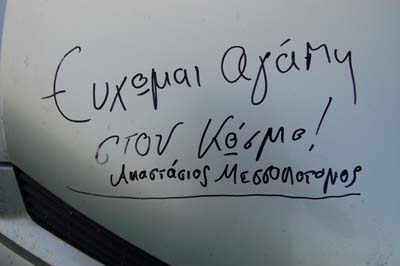 Ευχωμαι αγάπη
στον Κόσμο!
Αναστάσιος Μεσσοποτομος